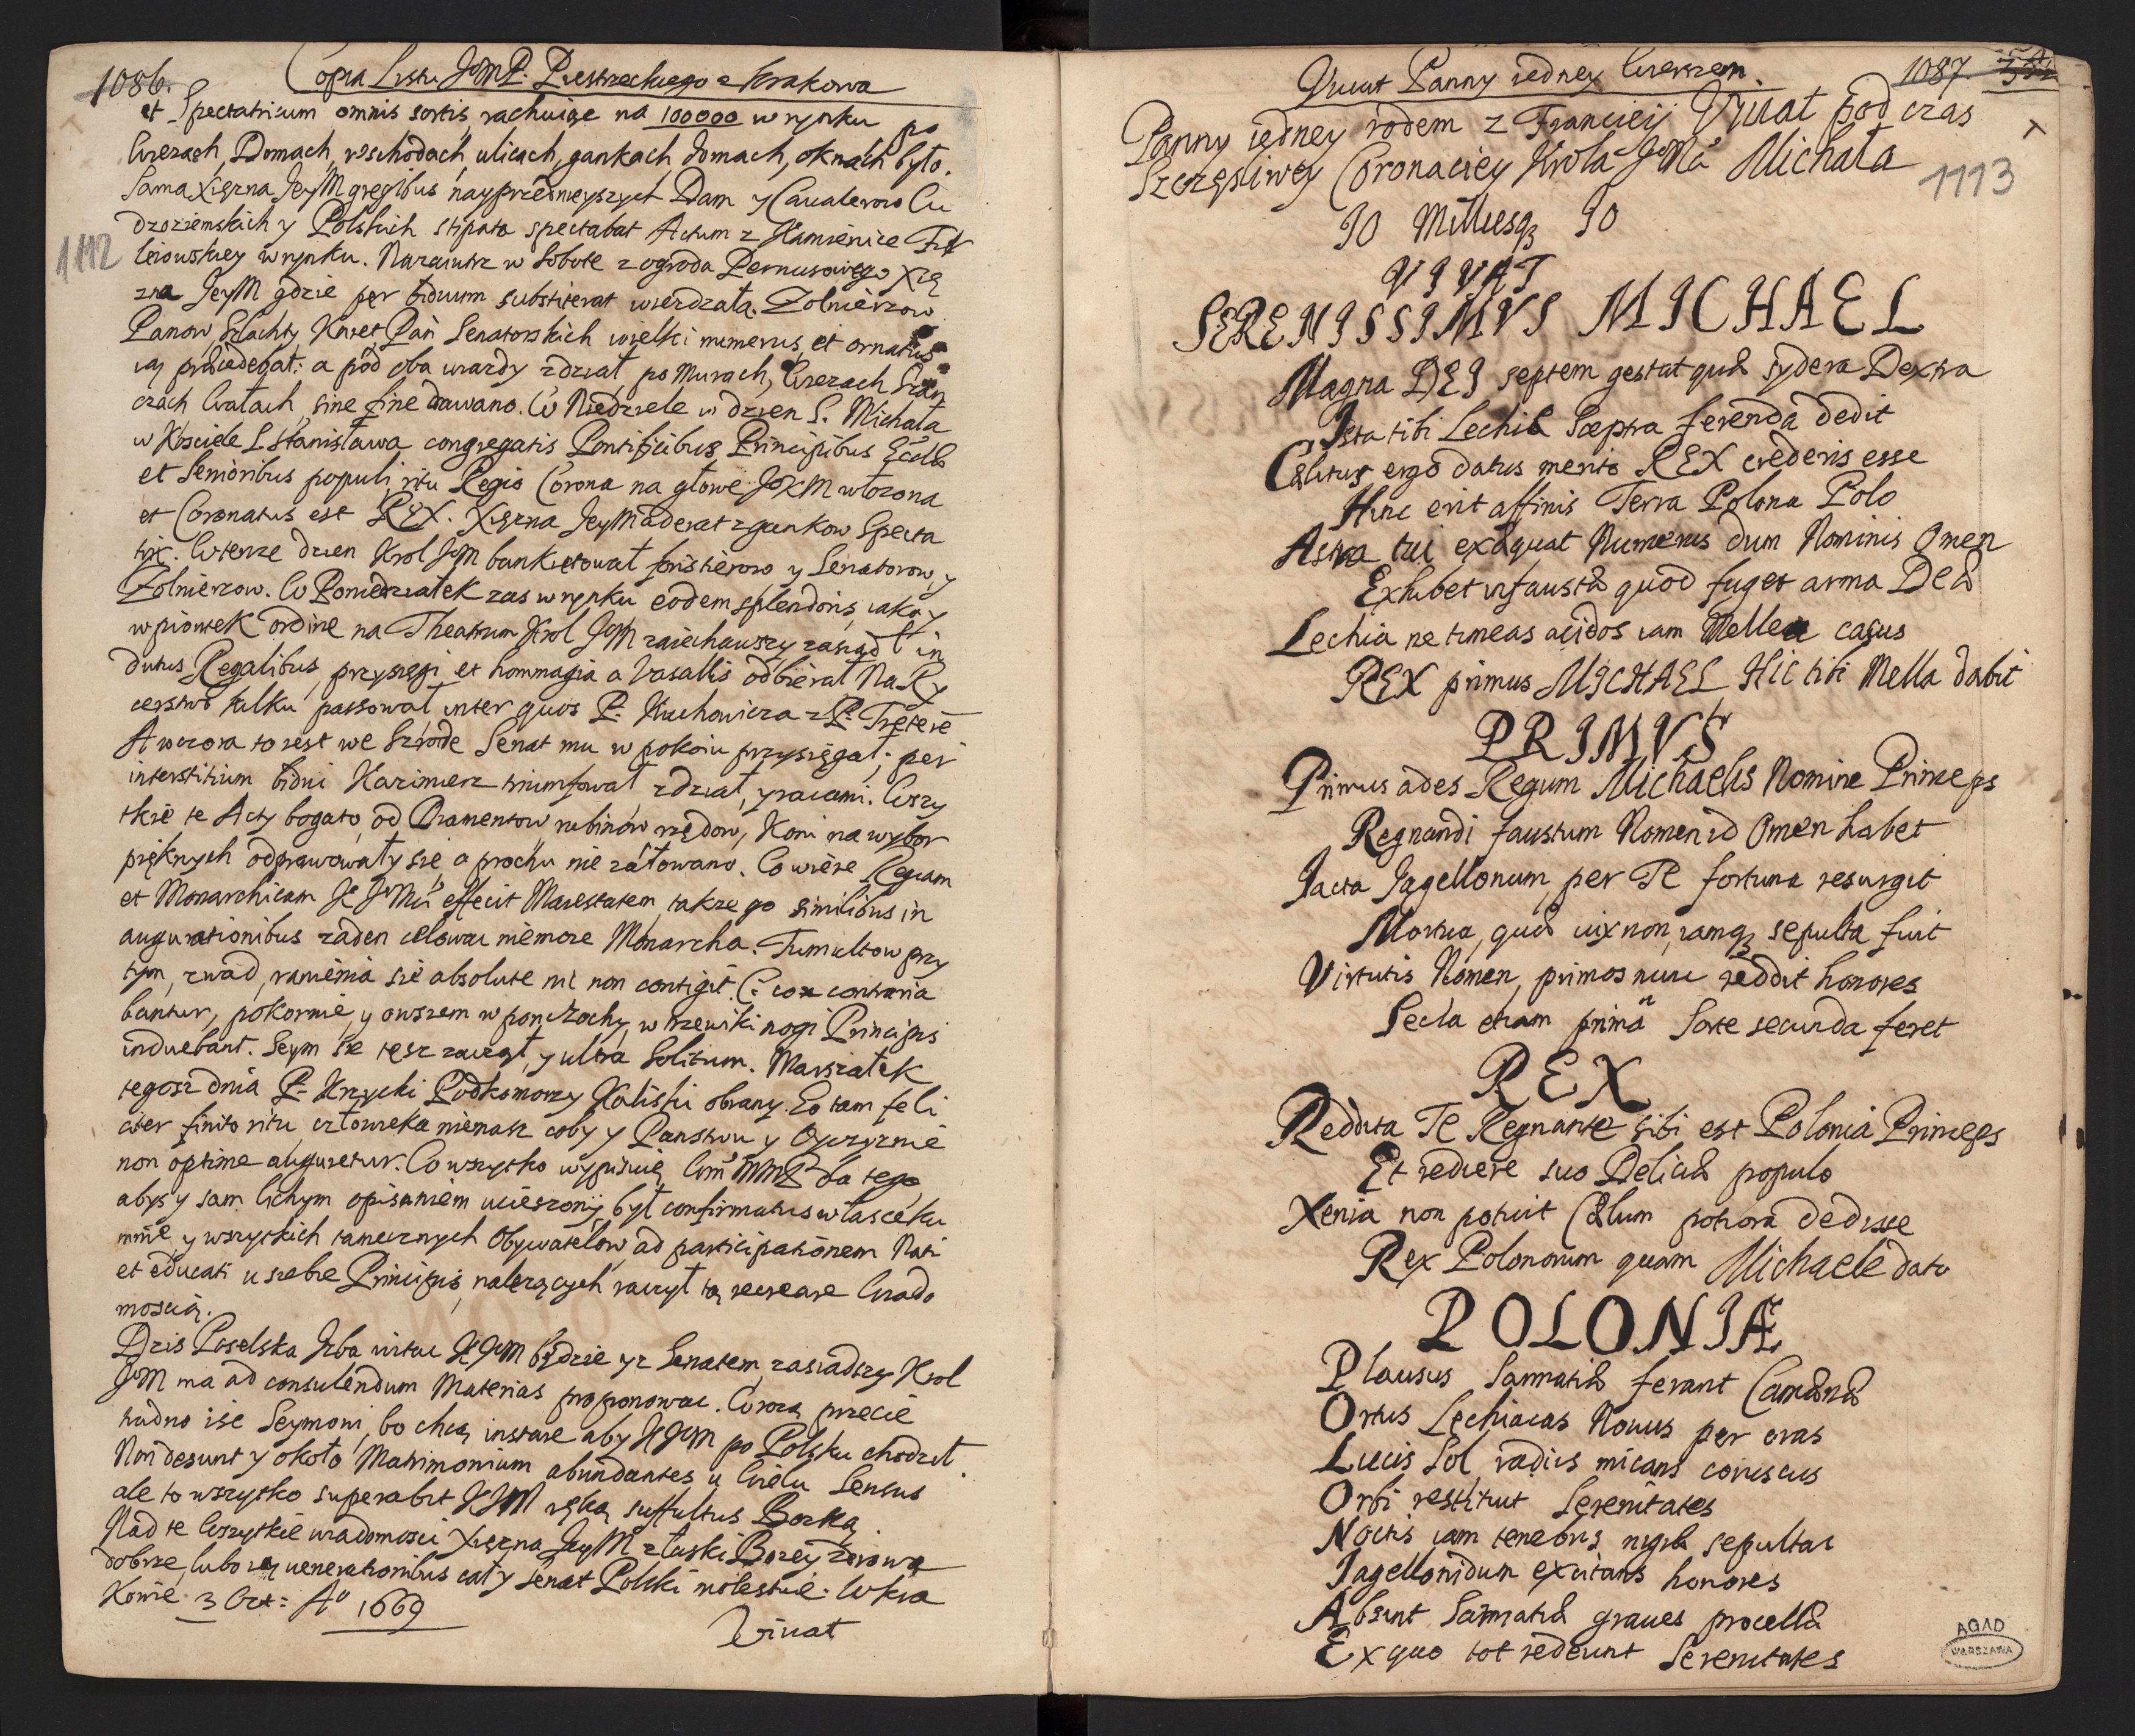 1086.
Copia Listu JeMP: Piestrzeckiego z Krakowa
et Spectatricum omnis sortis rachuiąc na 100000 w rynku po
Wiezach, Domach, wschodach, ulicach, gankach, domach, oknach było.
Sama Xięzna JeyM gregibus nayprzednieyszych Dam y Caualerow Cu
dzoziemskich y Polskich stipata spectabat Actum z Kamienice
w rynku. Nazaiutrz w Sobotę z ogroda Pernusowego Xię
zna JeyM gdzie per biduum substiterat wiezdzała. Zolnierzow
Panow, Szlachty, Karet, Pan Senatorskich wielki numerus et ornatus
ią præcedebat: a pod oba wiazdy z dział po Murach, Wiezach Szan
czach Wałach, sine fine dawano. W Niedziele w dzien S. Michała
w Kosciele S. Stanisława congregatis Pontificibus Principibus Eccellæ
et Senioribus populi, ritu Regio Corona na głowę JoKM włozona
et Coronatus est REX. Xięzna JeyM aderat z gankow Specta
trix. W tenze dzien Krol JoM bankietował y Senatorow, y
Zolnierzow. W Poniedziałek zas w rynku eodem splendoris, iako y
w piontek ordine na Theatrum Krol JoM zaiechawszy zasiadł in
dutus Regalibus, przysięgi et hommagia a Vasallis odbierał Na Ry
cerstwo kilku passował inter quos P:
A wczora to iest we Szrodę Senat mu w pokoiu przysięgał; per
interstitium bidui Kazimierz triumfował z dział, y racami. Wszy
tkie te Acty bogato, od Diamentow rubinow rzędow, Koni na wybor
pięknych odprawowały się, a prochu nie załowano. Co wiere Regiam
et Monarchicam Je JoMci effecit Maiestatem, takze go similibus in
augurationibus zaden celowac niemoze Monarcha. Tumultow przy
tym, zwad, ranienia sie absolute nic non contigit. Ci co contraria
bantur, pokornie, y owszem w ponczochy, w trzewiki nogi Principis
induebant. Seym się tesz zaczął, y ultra Solitum. Marszałek
tegosz dnia P: Krzycki Podkomorzy Kaliski obrany. Eo tam feli
citer finito ritu człowieka niemasz coby y Panstwu y Oyczyznie
non optime auguretur. Co wszytko wypisuię WmMMP: da tego
abys y sam lichym opisaniem ucieszony był confirmatus w łasce ku
mnie y wszytkich tamecznych Obywatelow ad participationem Nati
et educati u siebie Principis, nalezących raczył tą recreare Wiado
moscią.
Dzis Poselska Izba witac KJM będzie y z Senatem, zasiadszy Krol
JoM ma ad consulendum Materias proponowac. Wrozą przecie
trudno isc Seymowi, bo chcą instare aby KJM po Polsku chodził.
Non desunt y około Matrimonium abundantes u Wielu Sensus
ale to wszytko superabit KJM ręką suffultus Bozką.
Nad te Wszytkie wiadomosci Xięzna JeyM z łaski Bozey zdrowa
dobrze, lubo ią venerationibus cały Senat Polski molestuie. W Kra
kowie 3 Oct: Aº 1669
Vivat
1112
Vivat Panny iedney Wierszem.
1087.
Panny iedney rodem z Franciey Vivat pod czas
Szczęsliwey Coronaciey Krola JoMci Michała
1113
IO Milliesq; IO
VIVAT
SERENISSIMVS MICHAEL
Magna DEI septem gestat quæ sydera Dextra
Ista tibi Lechiæ Sceptra ferenda dedit
Cælitus ergo datus merito REX crederis esse
Hinc erit affinis Terra Polona Polo
Astra tui exæquat Numerus dum Nominis Omen
Exhibet infaustæ quod fuget arma Deæ
Lechia ne timeas acidos iam Mellea casus
REX primus MICHAEL Hic tibi Mella dabit
PRIMVS
Primus ades Regum Michaelis Nomine Princeps
Regnandi faustum Nomen id Omen habet
Jacta Jagellonum per Te fortuna resurgit
Mortua, quæ vix non, iamq; sepulta fuit
Virtutis Nomen, primos nunc reddit honores
Secla etiam primâ Sorte secunda feret
REX
Reddita Te Regnante sibi est Polonia Princeps
Et rediere suo Deliciæ populo
Xenia non potuit Cælum potiora dedisse
Rex Polonorum quam Michaele dato
POLONIÆ
Plausus Sarmatiæ ferant Camænæ
Ortus Lechiacas Nouus per oras
Lucis Sol radiis micans coruscus
Orbi restituit Serenitates
Noctis iam tenebris nigræ sepultas
Jagellonidum excitans honores
Absint Sarmatiæ graues procellæ
Ex quo tot redeunt Serenitates
AGAD
WARSZAWA